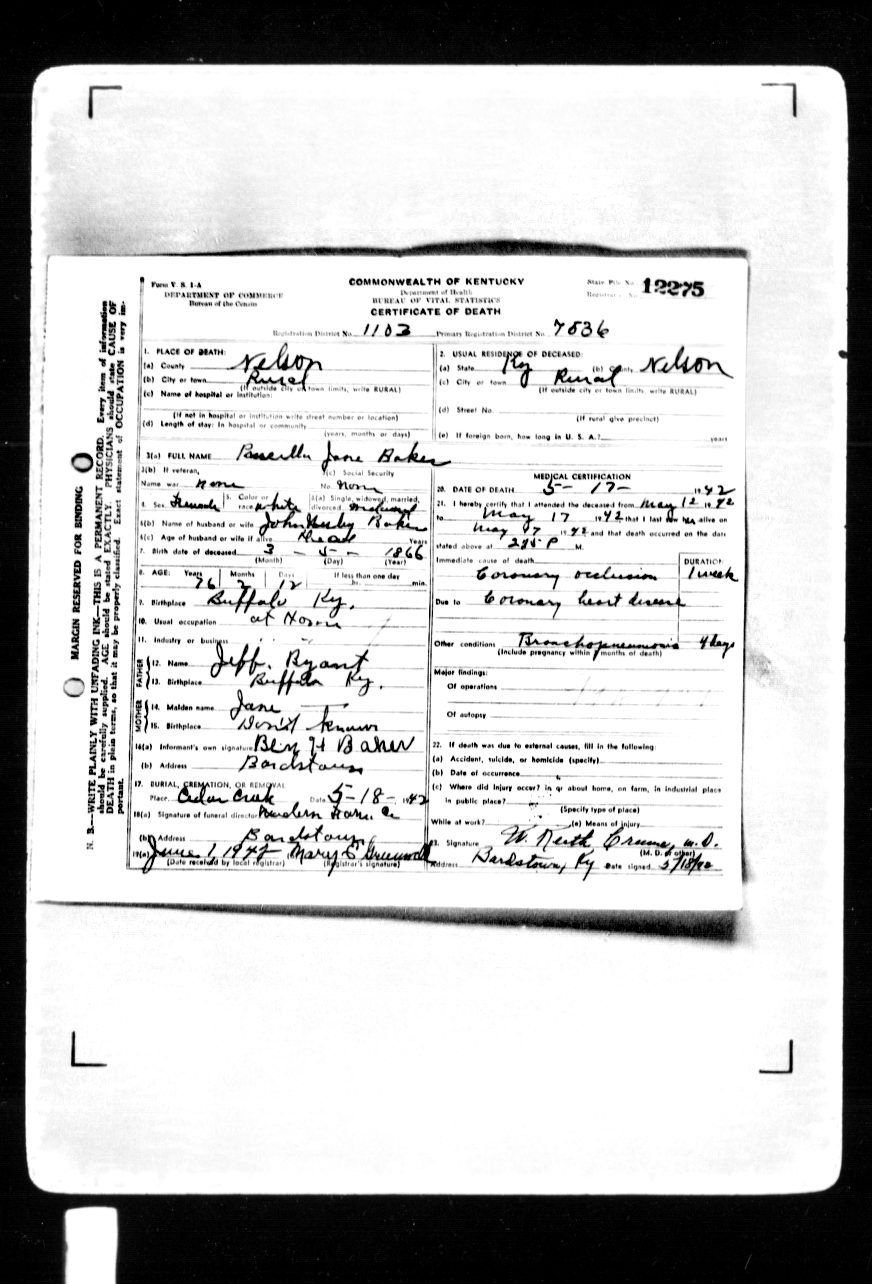 Form V. S. 1-A
DEPARTMENT OF COMMERCE
Bureau of the Census
COMMONWEALTH OF KENTUCKY
Department of Health
BUREAU OF VITAL STATISTICS
CERTIFICATE OF DEATH
State File No. 12275
Registrar's No.
Registration District No. 1103 Primary Registration District No. 7536
MARGIN RESERVED FOR BINDING
N. B.—WRITE PLAINLY WITH UNFADING INK—THIS IS A PERMANENT RECORD. Every item of information
should be carefully supplied. AGE should be stated EXACTLY. PHYSICIANS should state CAUSE OF
DEATH in plain terms, so that it may be properly classified. Exact statement of OCCUPATION is very im-
portant.
1. PLACE OF DEATH:
(a) County Nelson
(b) City or town Rural
(If outside city or town limits, write RURAL)
(c) Name of hospital or institution:
(If not in hospital or institution write street number or location)
(d) Length of stay: In hospital or community
(years, months or days)
2. USUAL RESIDENCE OF DECEASED:
(a) State Ky (b) County Nelson
(c) City or town Rural
(If outside city or town limits, write RURAL)
(d) Street No.
(If rural give precinct)
(e) If foreign born, how long in U. S. A.? years
3(a) FULL NAME Jane Baker
3(b) If veteran, 3(c) Social Security
Name war none No. none
4. Sex Female 5. Color or race white 6(a) Single, widowed, married, divorced
6(b) Name of husband or wife John Baker
6(c) Age of husband or wife if alive Dead Years
7. Birth date of deceased 3 - 5 - 1866
(Month) (Day) (Year)
8. AGE: Years Months Days If less than one day
76 2 12 hr. min.
9. Birthplace Buffalo Ky.
10. Usual occupation at Home
11. Industry or business
FATHER
12. Name Jeff. Ryant
13. Birthplace Buffalo Ky.
MOTHER
14. Maiden name Jane
15. Birthplace Don't know
16(a) Informant's own signature Ben H Baker
(b) Address Bardstown
17. BURIAL, CREMATION, OR REMOVAL
Place Cedar Creek Date 5-18-1942
18(a) Signature of funeral director
(b) Address Bardstown
19(a) June 1 1942 Mary E Greenwell
(Date received by local registrar) (Registrar's signature)
MEDICAL CERTIFICATION
20. DATE OF DEATH 5-17- 1942
21. I hereby certify that I attended the deceased from May 12 1942
to May 17 1942 that I last saw h alive on
May 17 1942 and that death occurred on the date
stated above at 245 P M.
Immediate cause of death DURATION
Coronary occlusion 1 week
Due to Coronary heart disease
Other conditions Bronchopneumonia 4 days
(Include pregnancy within 3 months of death)
Major findings:
Of operations
Of autopsy
22. If death was due to external causes, fill in the following:
(a) Accident, suicide, or homicide (specify)
(b) Date of occurrence
(c) Where did injury occur? in or about home, on farm, in industrial place
in public place?
(Specify type of place)
While at work? (e) Means of injury
23. Signature W. Keith Crume, M.D.
(M. D. or other)
Address Bardstown, Ky Date signed 5/18/42